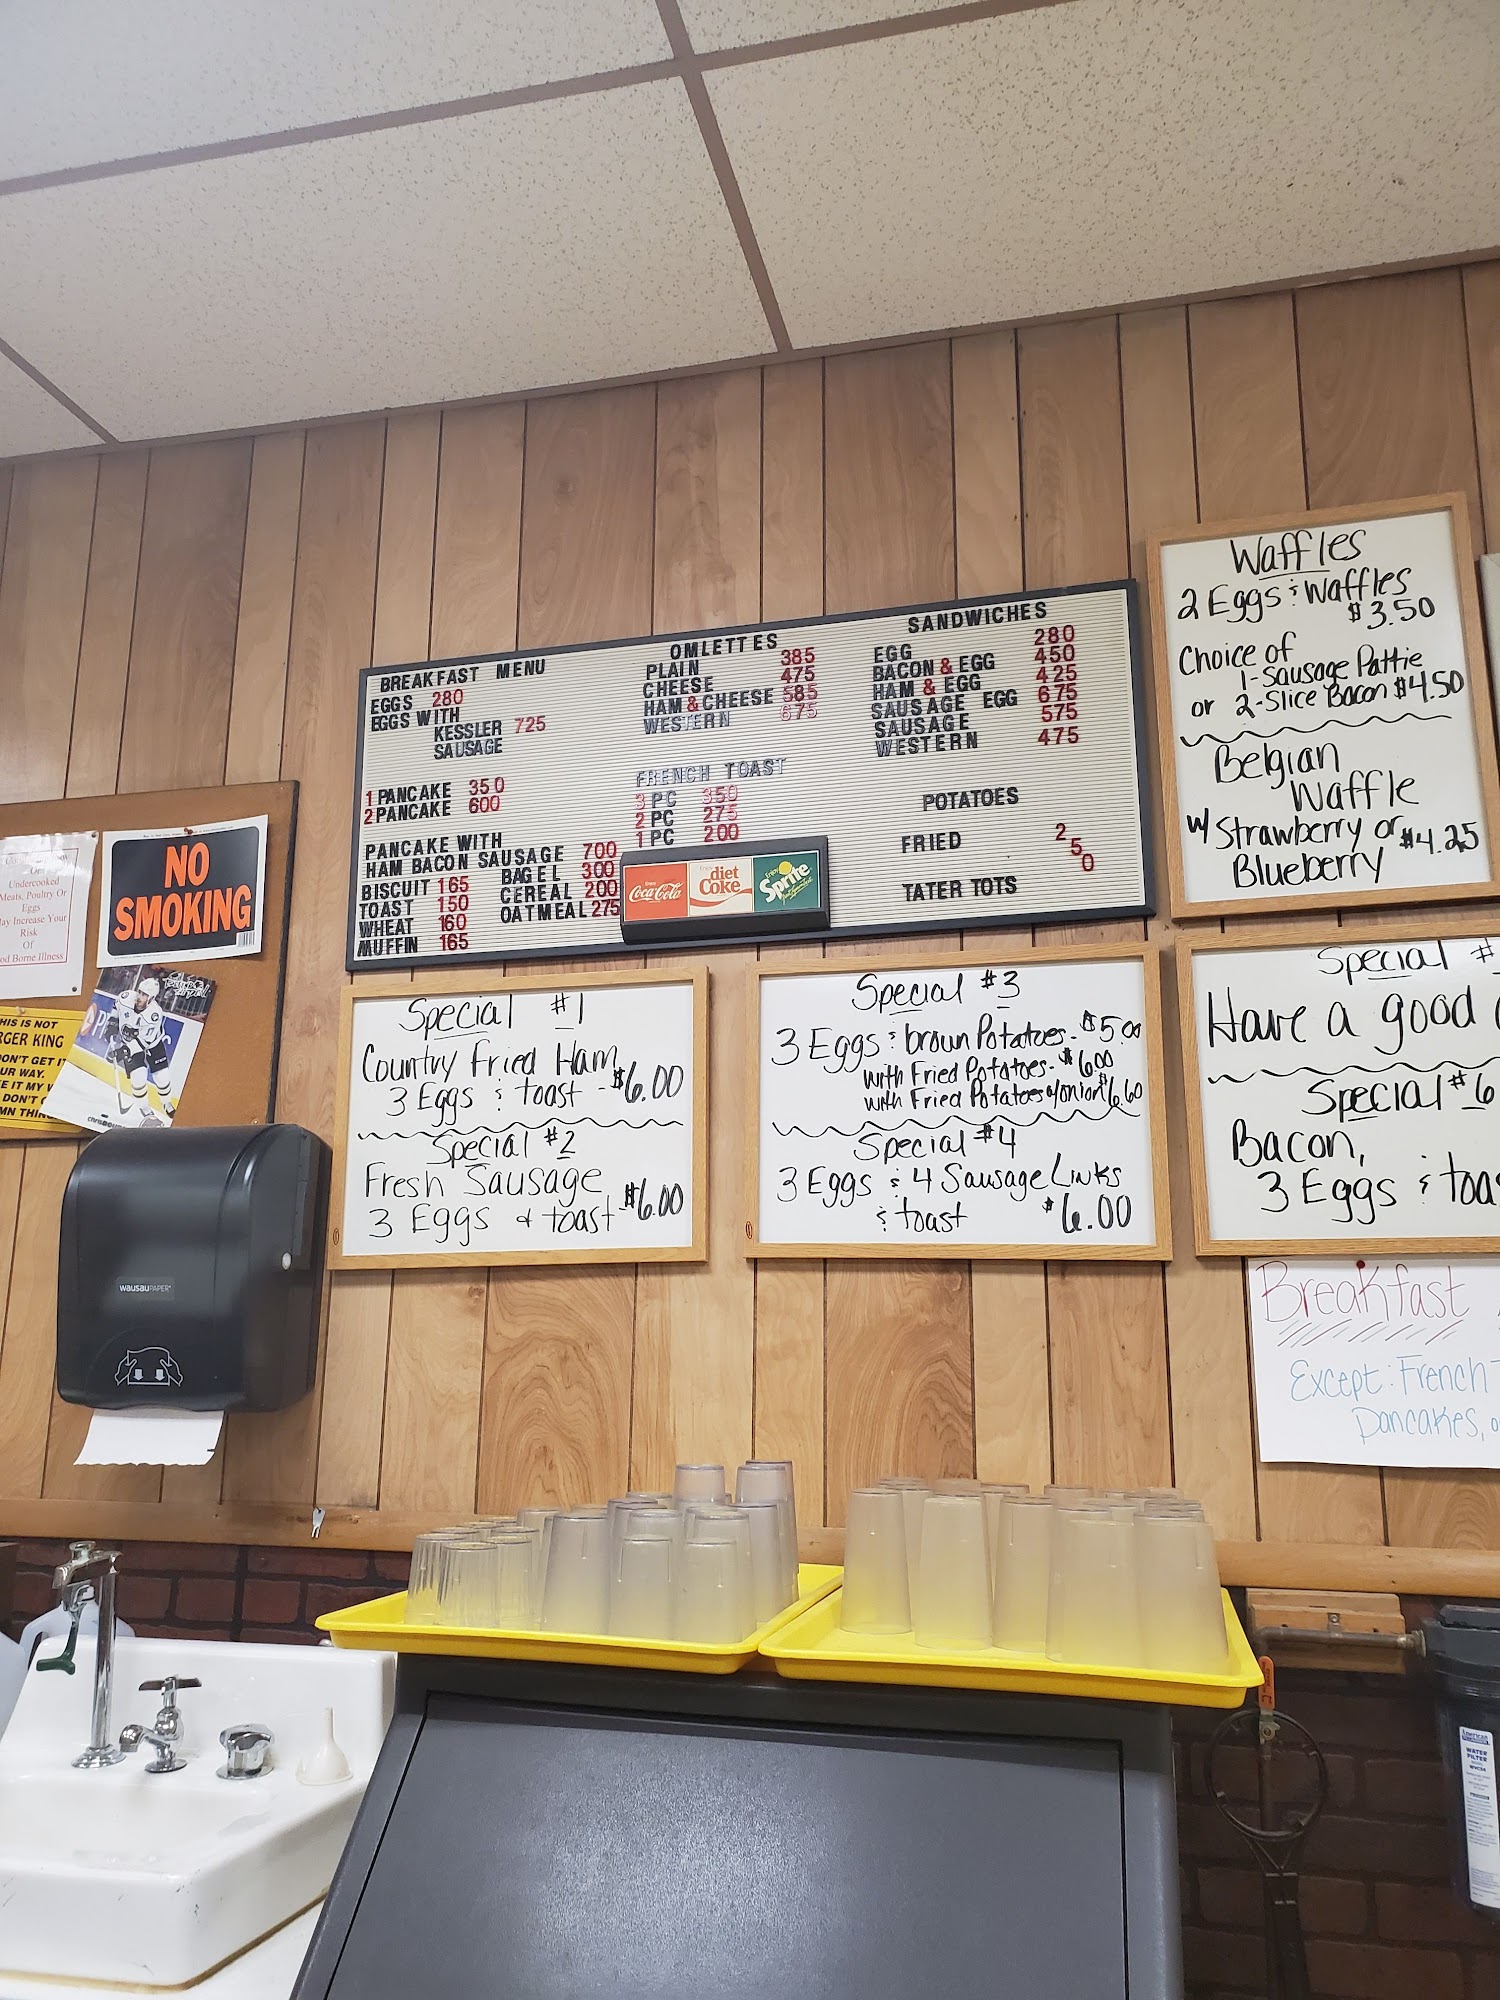 BREAKFAST MENU
EGGS 280
EGGS WITH
KESSLER 725
SAUSAGE
1 PANCAKE 350
2 PANCAKE 600
PANCAKE WITH
HAM BACON SAUSAGE 700
BISCUIT 165
TOAST 150
WHEAT 160
MUFFIN 165
BAGEL 300
CEREAL 200
OATMEAL 275
OMLETTES
PLAIN 385
CHEESE 475
HAM & CHEESE 585
WESTERN 675
FRENCH TOAST
3 PC 350
2 PC 275
1 PC 200
Enjoy
Coca-Cola
diet
Coke
Enjoy
Sprite
SANDWICHES
EGG 280
BACON & EGG 450
HAM & EGG 425
SAUSAGE EGG 675
SAUSAGE 575
WESTERN 475
POTATOES
FRIED 250
TATER TOTS
Waffles
2 Eggs & Waffles
$3.50
Choice of
1-Sausage Pattie
or 2-Slice Bacon $4.50
Belgian
Waffle
w/ Strawberry or $4.25
Blueberry
Undercooked
Meats, Poultry Or
Eggs
May Increase Your
Risk
Of
Food Borne Illness
NO
SMOKING
THIS IS NOT
BURGER KING
DON'T GET IT
Special #1
Country Fried Ham
3 Eggs & toast - $6.00
Special #2
Fresh Sausage
3 Eggs & toast - $6.00
Special #3
3 Eggs & brown Potatoes - $5.00
with Fried Potatoes - $6.00
with Fried Potatoes w/onion $6.60
Special #4
3 Eggs & 4 Sausage Links
& toast $6.00
Special #
Have a good
Special #6
Bacon,
3 Eggs & toa
Breakfast
Except: French
Pancakes,
WAUSAUPAPER
American
WATER
FILTER